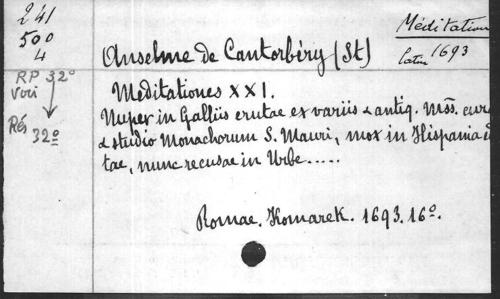 241
500
4
RP 32°
voir
Rés 32º
Méditation
latin 1693
Anselme de Cantorbéry (St)
Meditationes XXI.
Nuper in Galliis erutae ex variis & antiq. Mss. cur
& studio Monachorum S. Mauri, mox in Hispania
tae, nunc recusae in Urbe.....
Romae. Komarek. 1693. 16º.